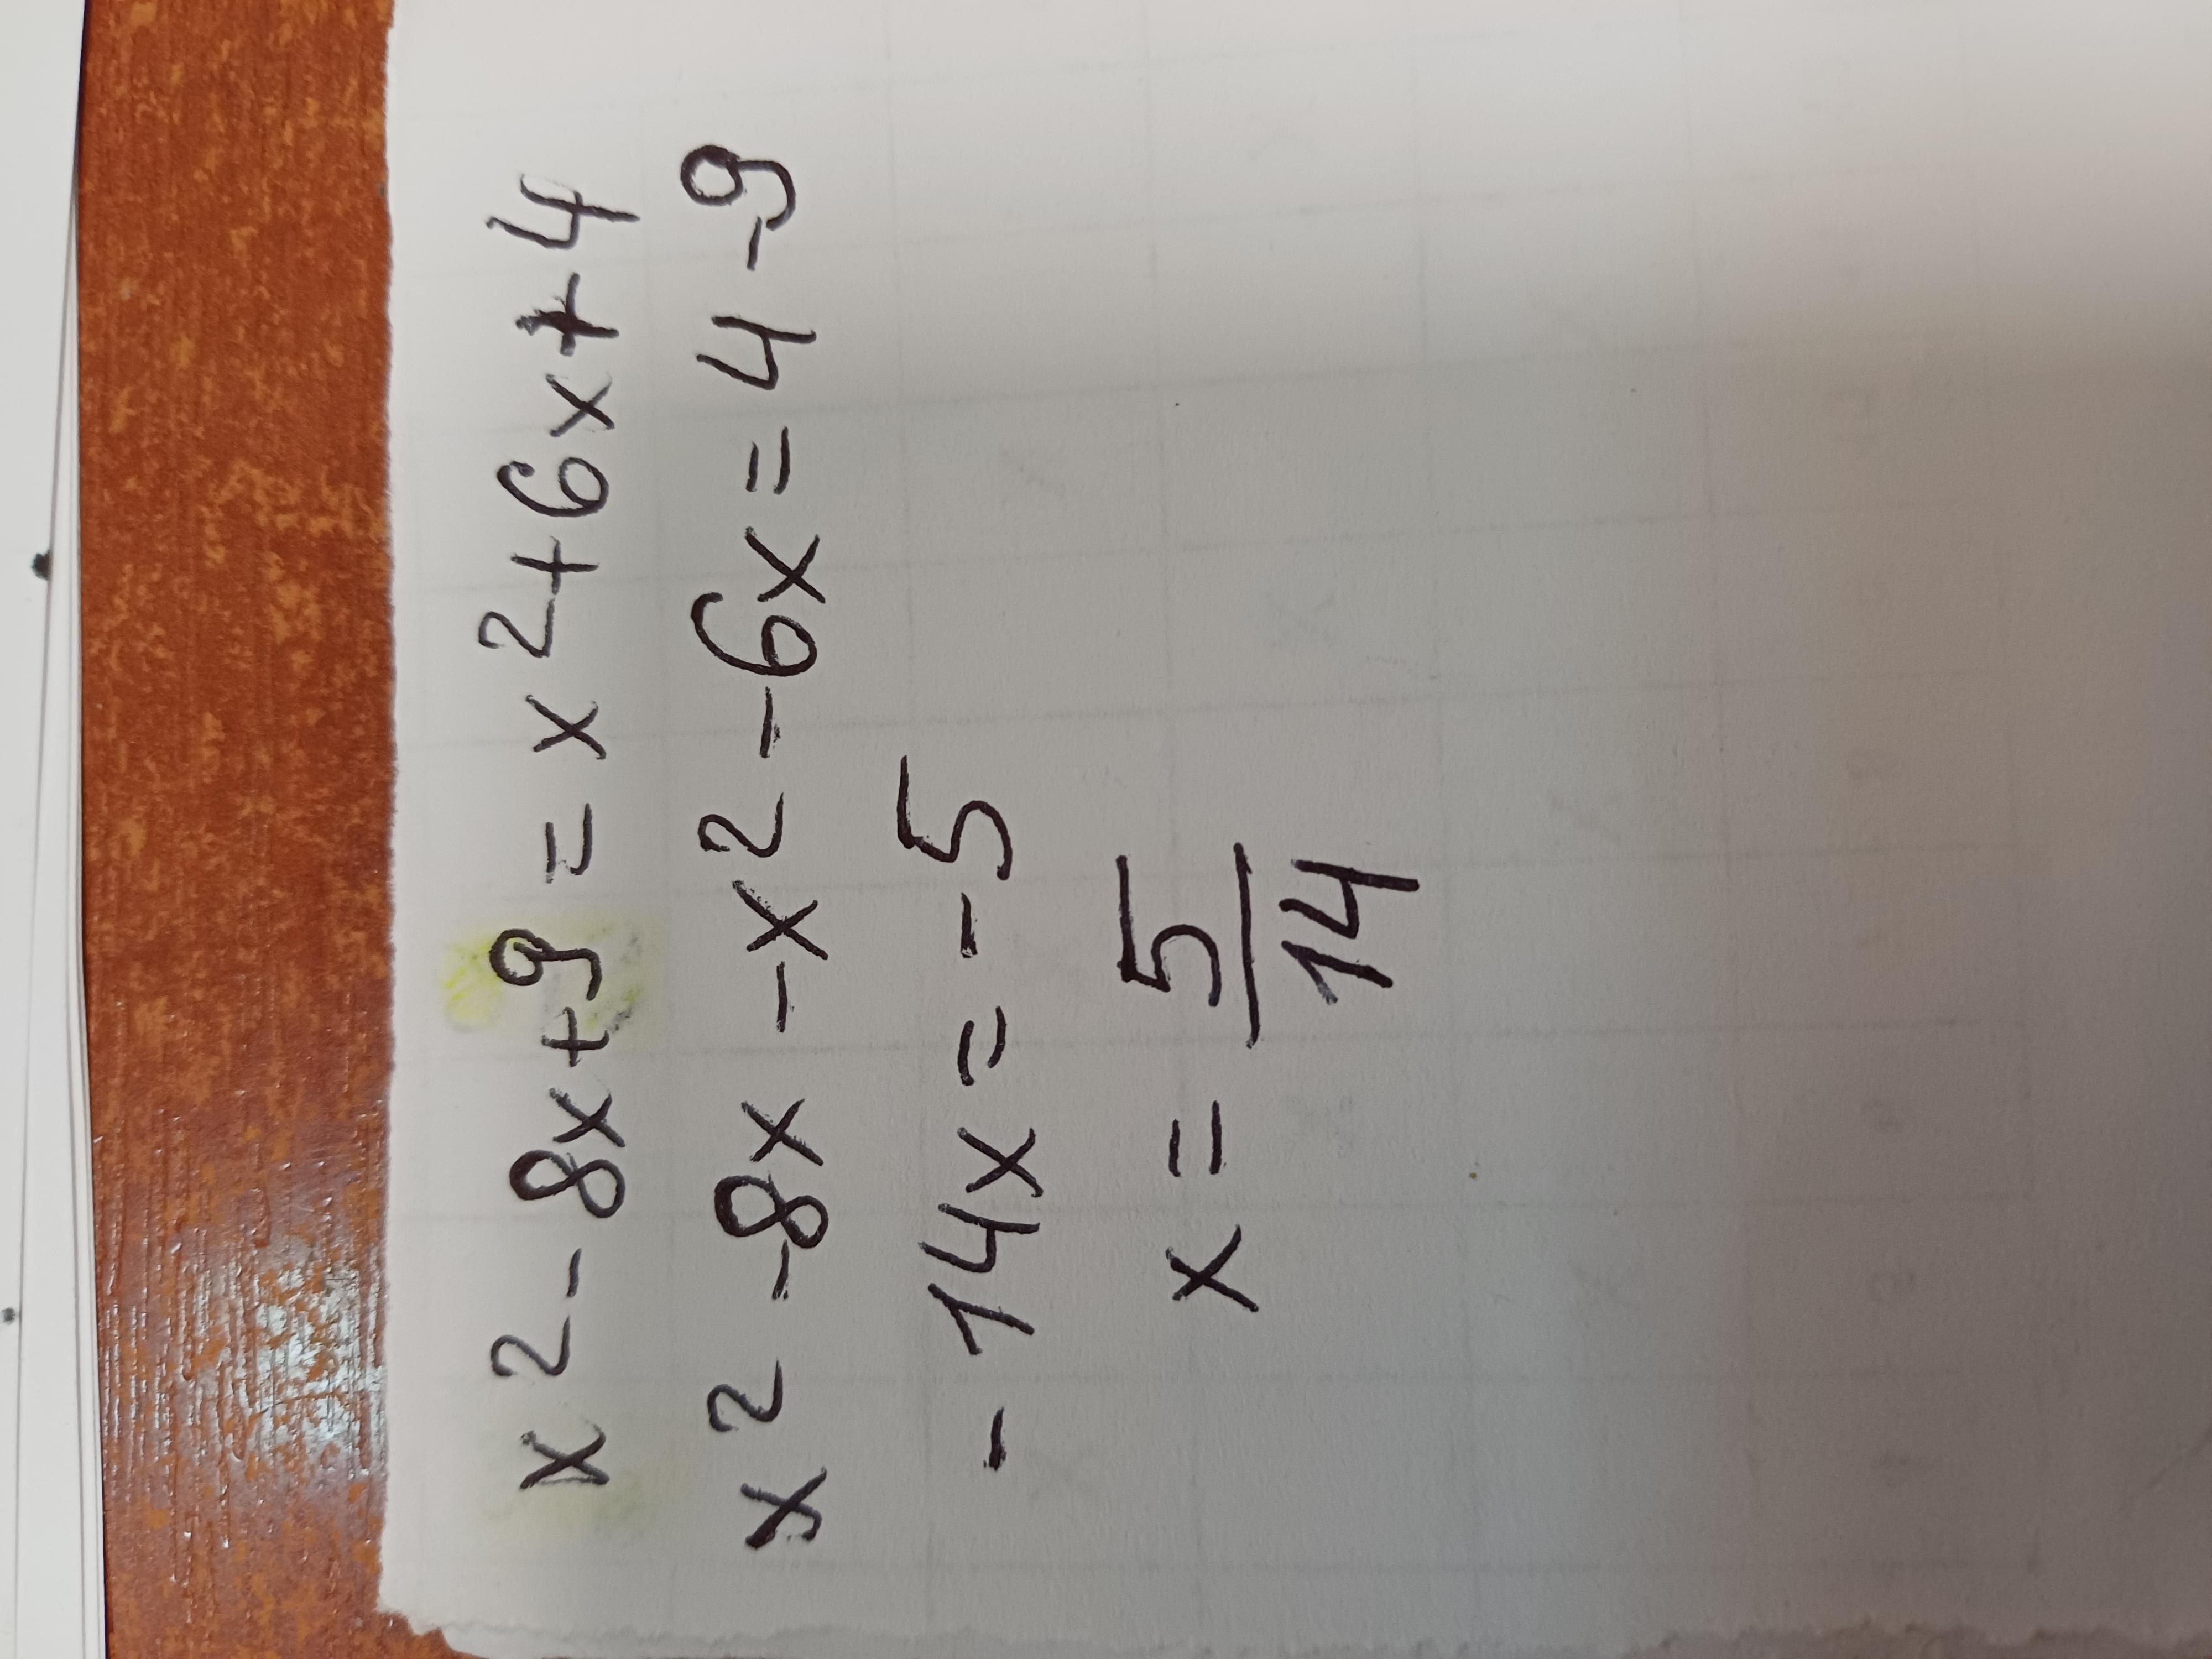 x² - 8x + 9 = x² + 6x + 4
x² - 8x - x² - 6x = 4 - 9
- 14x = - 5
x = 5/14